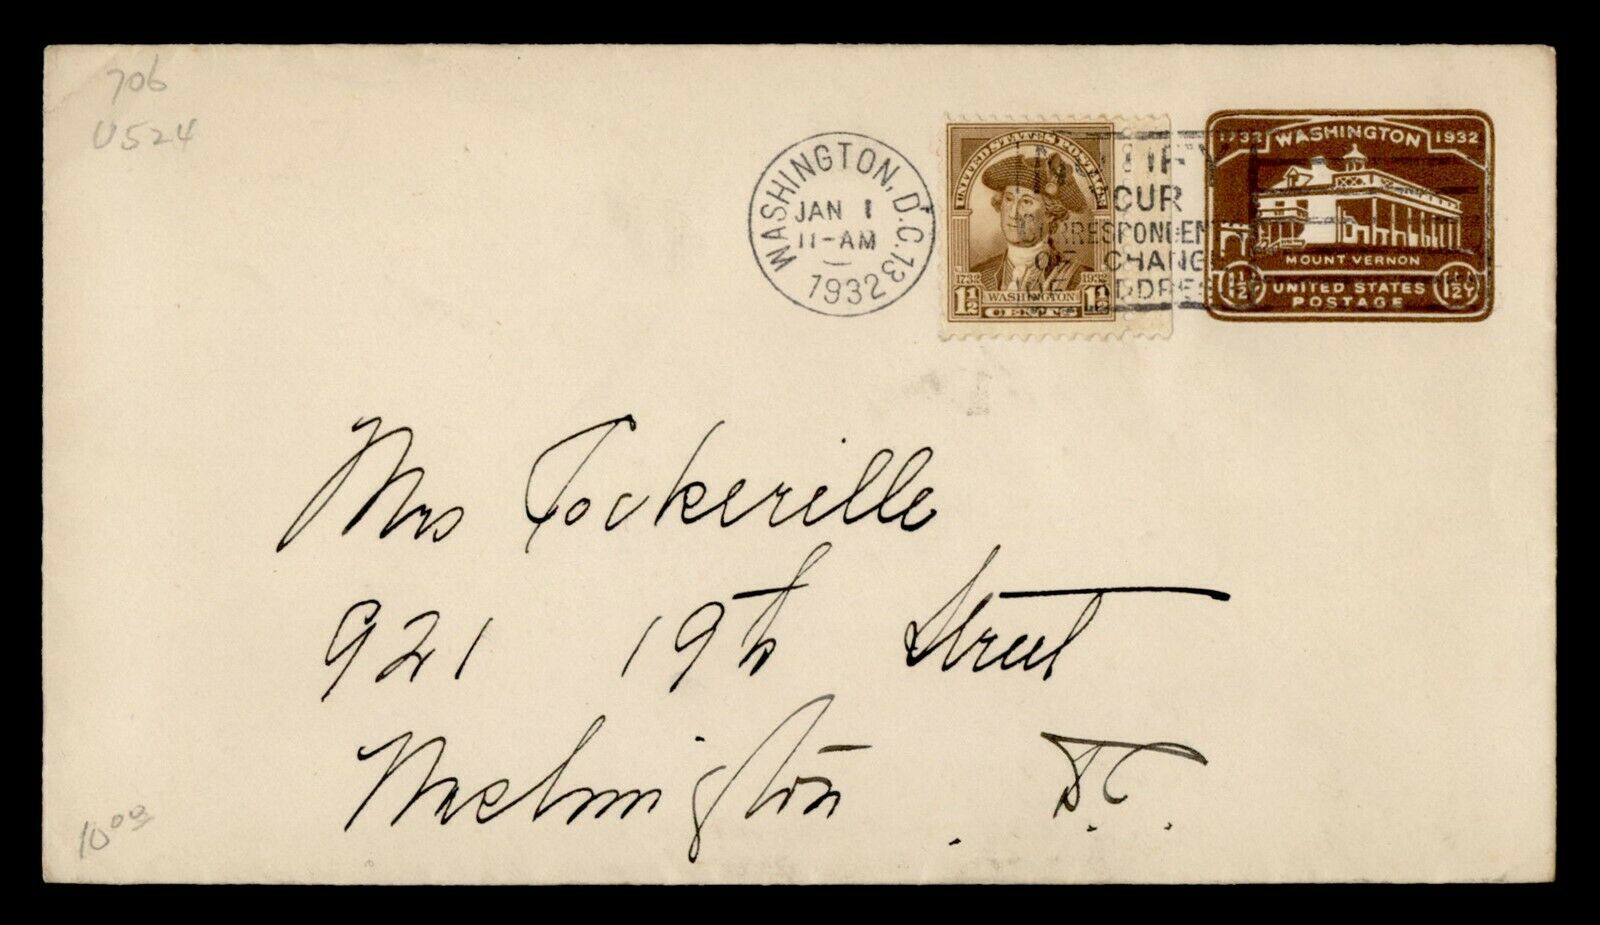 706
U524
WASHINGTON, D.C. 13
JAN 1
11-AM
1932
UNITED STATES POSTAGE
1732 1932
1½ WASHINGTON 1½
CENTS
NOTIFY
YOUR
CORRESPONDENTS
OF CHANGE
OF ADDRESS
1732 WASHINGTON 1932
MOUNT VERNON
1½ UNITED STATES 1½
POSTAGE
Mrs Cockerille
921 19th Street
Washington D.C.
10.00